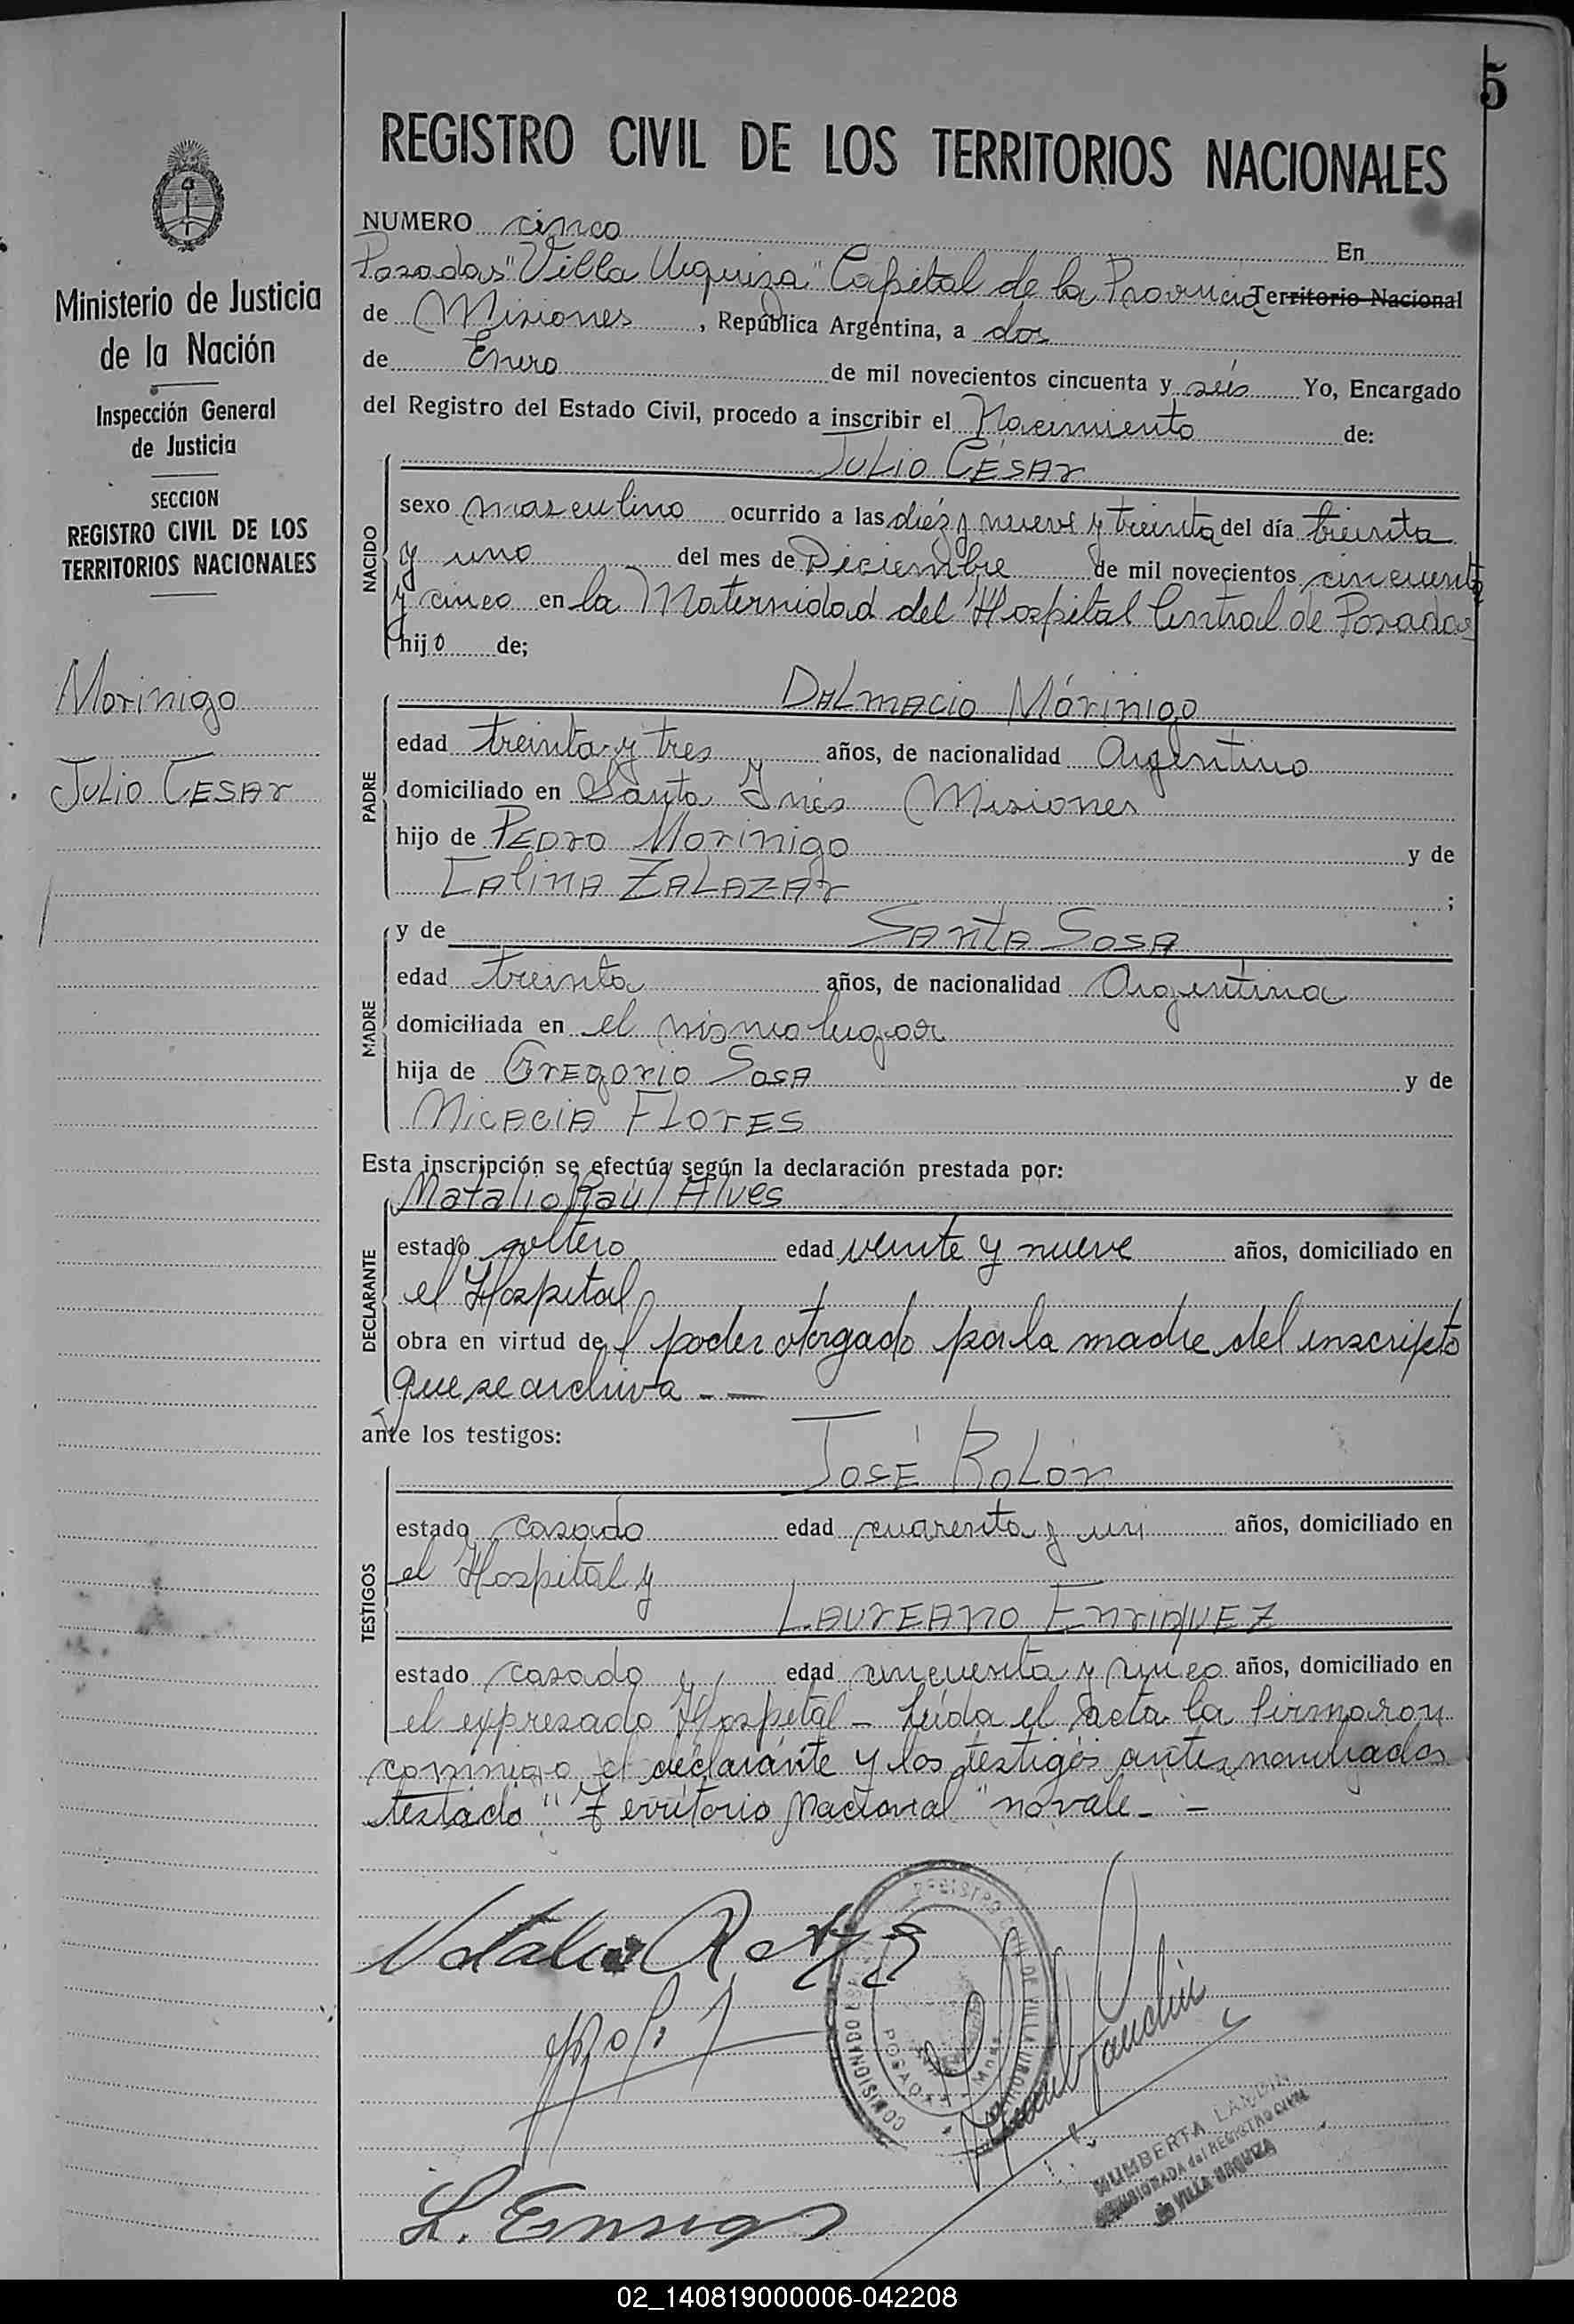 5
REGISTRO CIVIL DE LOS TERRITORIOS NACIONALES
Ministerio de Justicia
de la Nación
Inspección General
de Justicia
SECCION
REGISTRO CIVIL DE LOS
TERRITORIOS NACIONALES
Morinigo
Julio CESAr
NUMERO cinco En
Posadas "Villa Urquiza" Capital de la Provincia Territorio Nacional
de Misiones, República Argentina, a dos
de Enero de mil novecientos cincuenta y seis Yo, Encargado
del Registro del Estado Civil, procedo a inscribir el Nacimiento de:
Julio CÉSAr
NACIDO
sexo masculino ocurrido a las diéz y nueve y treinta del día treinta
y uno del mes de Diciembre de mil novecientos cincuenta
y cinco en la Maternidad del Hospital Central de Posadas
hijo de;
PADRE
DALmAcio Mórinigo
edad treinta y tres años, de nacionalidad Argentino
domiciliado en Santa Inés Misiones
hijo de PEDro Morinigo y de
CAlinA ZALAZAr ;
MADRE
y de SAntA SosA
edad treinta años, de nacionalidad Argentina
domiciliada en el mismo lugar
hija de GrEgorio SosA y de
NicAciA FLorES
Esta inscripción se efectúa según la declaración prestada por:
DECLARANTE
Natalio Raúl Alves
estado soltero edad veinte y nueve años, domiciliado en
el Hospital
obra en virtud del poder otorgado por la madre del inscripto
que se archiva - —
ante los testigos:
TESTIGOS
José RoLón
estado casado edad cuarenta y un años, domiciliado en
el Hospital y
LAurEAno EnriquEZ
estado casado edad cincuenta y cinco años, domiciliado en
el expresado Hospital - Leída el acta la firmaron
conmigo el declarante y los testigos antes nombrados
testado "Territorio Nacional" no vale - -
Natalio R
REGISTRO CIVIL DE VILLA URQUIZA
COMISIONADO
POSADAS
L. Enriq
HUMBERTA
COMISIONADA del REGISTRO CIVIL
de VILLA URQUIZA
02_140819000006-042208